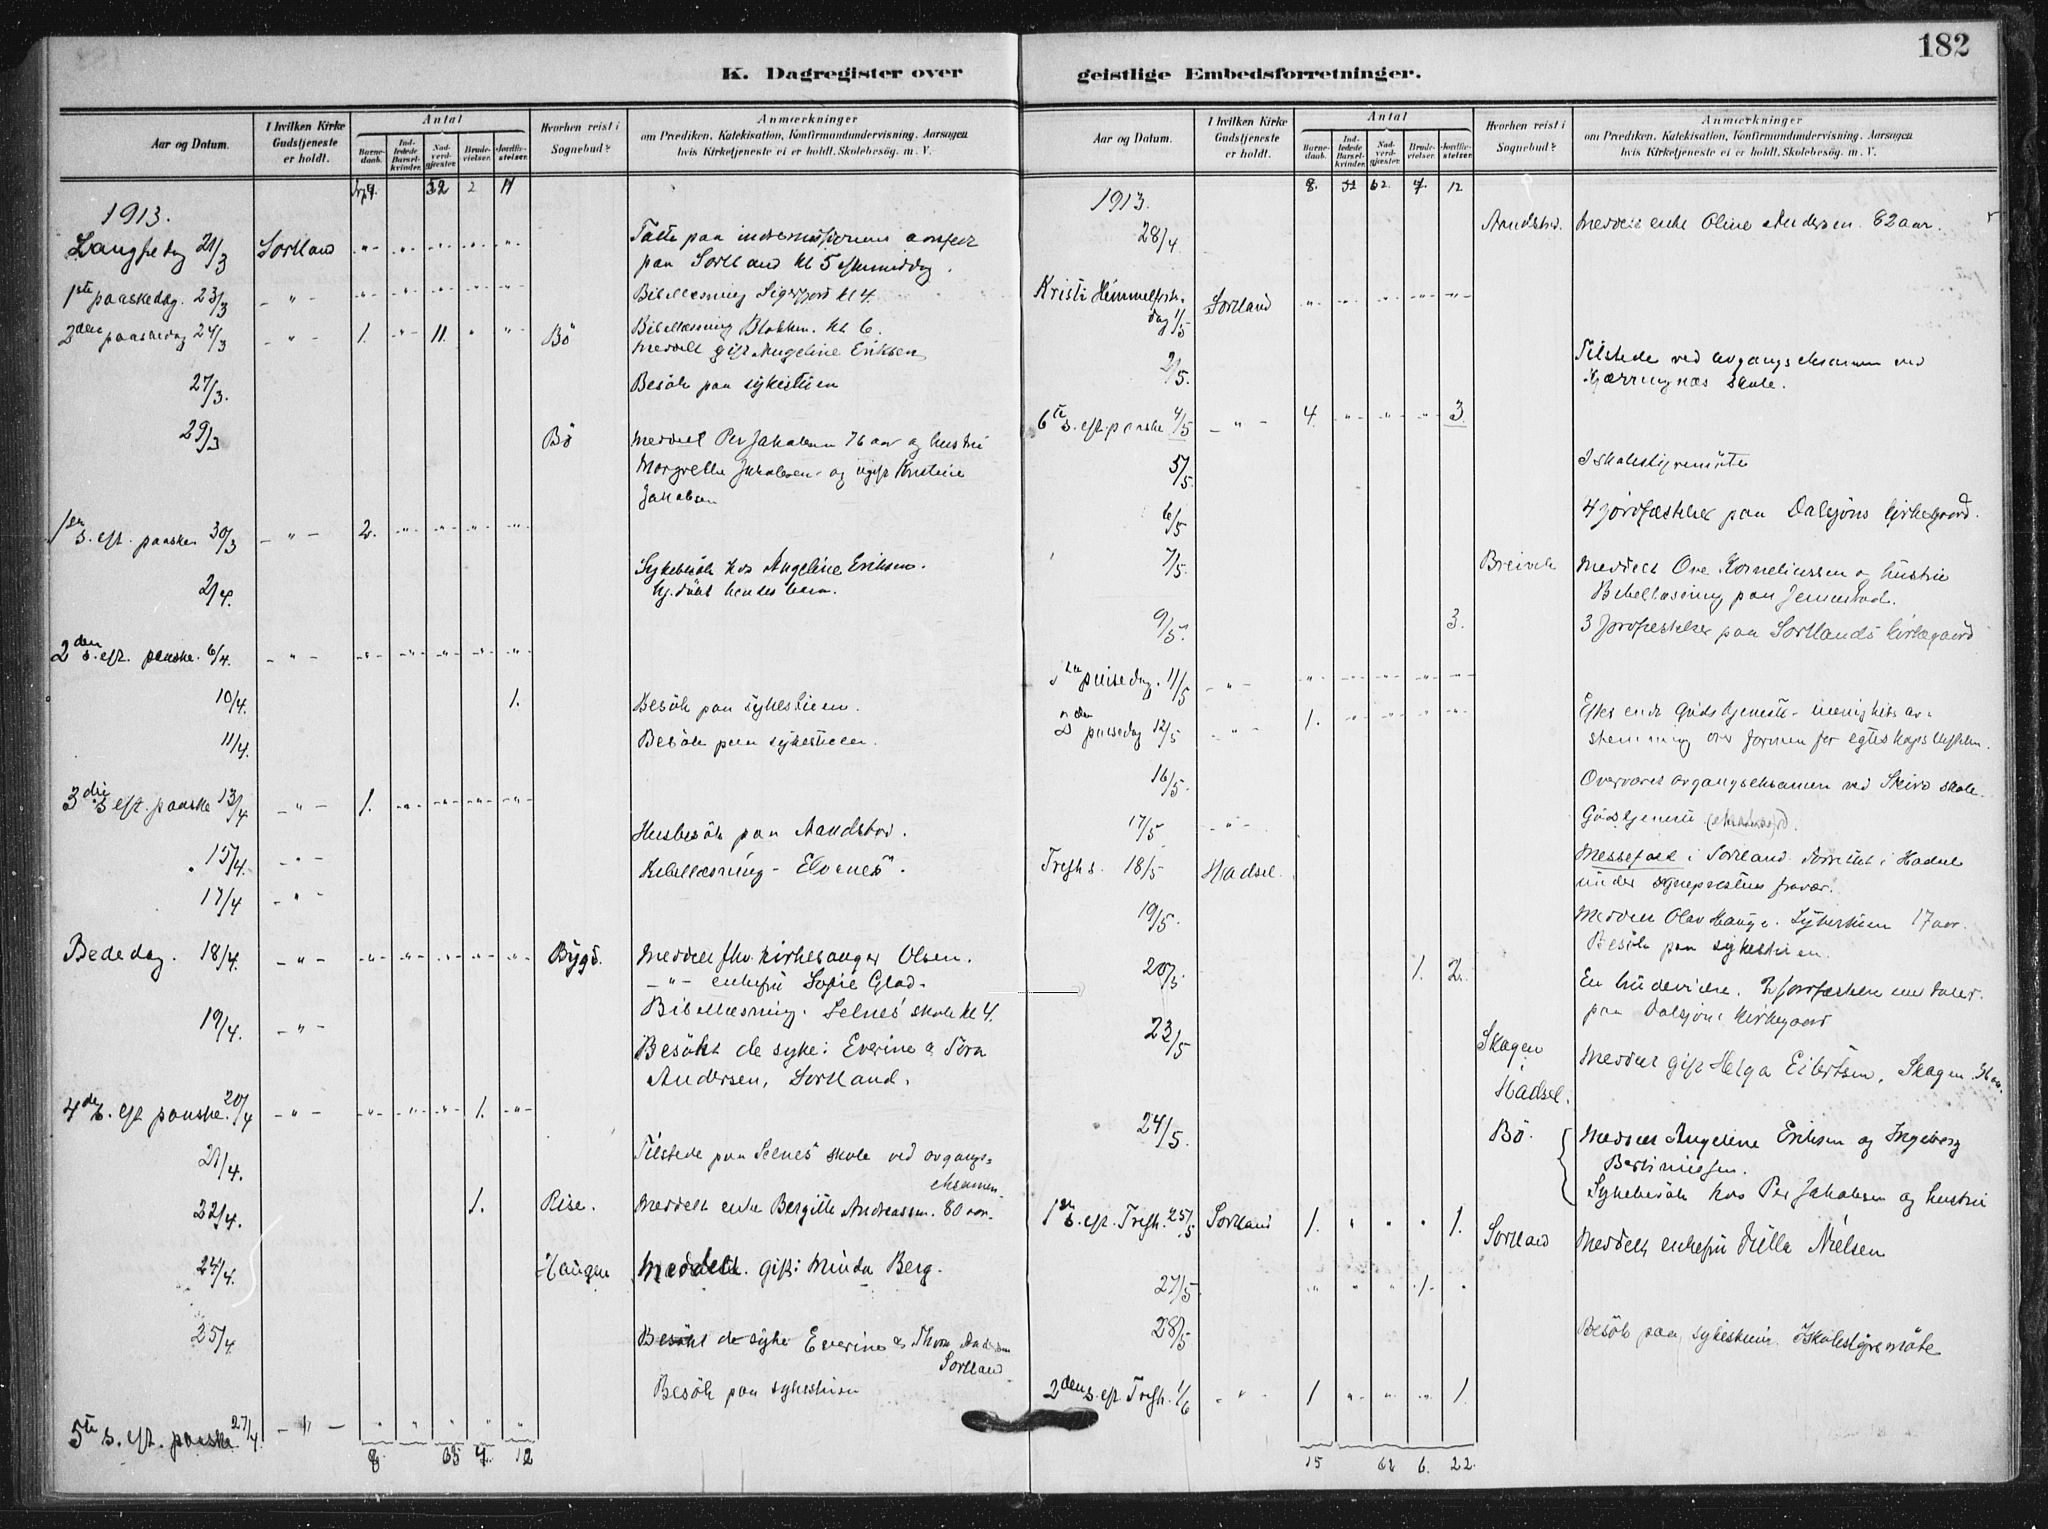 182
K. Dagregister over
Aar og Datum.
I hvilken Kirke Gudstjeneste er holdt.
Antal
Barnedaab.
Indledede Barselkvinder.
Nadverdgjester.
Brudevielser.
Jordfæstelser.
Hvorhen reist i Sognebud?
Anmærkninger
om Prædiken, Katekisation, Konfirmandundervisning. Aarsagen
hvis Kirketjeneste ei er holdt. Skolebesøg. m. V.
1913.
Langfredag 21/3 Sortland -"- -"- -"- -"- -"-
paa Sortland kl 5 eftermiddag.
1ste paaskedag. 23/3 - " - -"- -"- -"- -"- -"- Bibellæsning Sigerfjord kl 4.
2den paaskedag 24/3 - " - 1. -"- 11. " -"- Bø Bibellæsning Blokken. kl 6.
Meddelt gift Angeline Eriksen
27/3. Besøk paa sykestuen
29/3 Bø Meddelt Per Jakobsen 76 aar og hustru
Margrethe Jakobsen og ugift Kristine
Jakobsen
1ste s. eft. paaske 30/3 - " - 2. -"- -"- -"- -"-
2/4. Sykebesøk hos Angeline Eriksen.
Hj.døbt hendes barn.
2den s. eft. paaske. 6/4. - " - -"- -"- -"- -"- -"-
10/4. 1. Besøk paa sykestuen.
11/4. Besøk paa sykestuen.
3die s eft. paaske 13/4 - " - 1. -"- -"- -"- -"-
Husbesøk paa Aandstad.
15/4. - " - Bibellæsning - Elvenes".
17/4 - " -
Bededag. 18/4. - " - -"- -"- -"- -"- -"- Bygd. Meddelt fhv. kirkesanger Olsen.
- " - enkefru Sofie Glad.
19/4. - " - Bibellæsning. Selnes skole kl 4.
Besøkt de syke: Everine & Tora
Andersen, Sortland.
4de s. eft paaske. 20/4 - " - -"- -"- -"- 1. -"-
21/4. Tilstede paa Selnes skole ved avgangs-
eksamen.
22/4. 1. Rise. Meddelt enke Bergitte Andreassen. 80 aar.
24/4. Haugen Meddelt. gift: Minda Berg.
25/4 Besøkt de syke Everine & Thora Andersen
Sortland.
Besøk paa sykestuen
5te s. eft. paaske. 27/4. - " - " " " " "
8 4. 12
geistlige Embedsforretninger.
Aar og Datum.
I hvilken Kirke Gudstjeneste er holdt.
Antal
Barnedaab.
Indledede Barselkvinder.
Nadverdgjester.
Brudevielser.
Jordfæstelser.
Hvorhen reist i Sognebud?
Anmærkninger
om Prædiken, Katekisation, Konfirmandundervisning. Aarsagen
hvis Kirketjeneste ei er holdt. Skolebesøg. m. V.
8. 4. 12
1913.
28/4 Aandstad. Meddelt enke Oline Andersen. 82 aar.
Kristi Himmelfarts-
dag 1/5 Sortland -"- -"- -"- -"- -"-
2/5. Tilstede ved avgangseksamen ved
Kjærringnes skole.
6te s. eft. paaske 4/5 - " - 4. -"- -"- -"- 3.
5/5. I skolestyremøte
6/5 4 jordfæstelser paa Dalsjøns kirkegaard.
7/5. Breivik Meddelt Ove Korneliussen og hustru
Bibellæsning paa Jennestad.
9/5. 3. 3 jordfæstelser paa Sortlands kirkegaard
1ste pinsedag. 11/5 - " - -"- -"- -"- -"- -"-
2den pinsedag 12/5 - " - 1. -"- -"- -"- -"- Efter endt Gudstjeneste - menighetsav-
stemning over formen for
16/5. Overværet avgangseksamen ved Steiro skole.
17/5. - " - Gudstjeneste
Trefh s. 18/5 Hadsel. Messefald i Sortland. Forrettet i Hadsel
under sogneprestens fravær.
19/5. Meddelt Olav Hauge. Sykestuen 17 aar.
Besøk paa sykestuen.
20/5 1. 2. En brudevielse. 2 jordfæstelser med taler.
paa Dalsjøns kirkegaard
23/5 Skagen
Hadsel. Meddelt gift Helga Eilertsen, Skagen.
24/5. Bø. Meddelt Angeline Eriksen og Ingeborg
Sykebesøk hos Per Jakobsen og hustru
1ste s. eft. Trefh. 25/5 Sortland 1. " " " 1. Sortland Meddelt enkefru Nielsen
27/5. " " " 1. "
28/5 Besøk paa sykestuen. Skolestyremøte
2den s. eft. Trefh. 1/6 - " - 1 -"- -"- -"- 1.
15 62 6. 22.